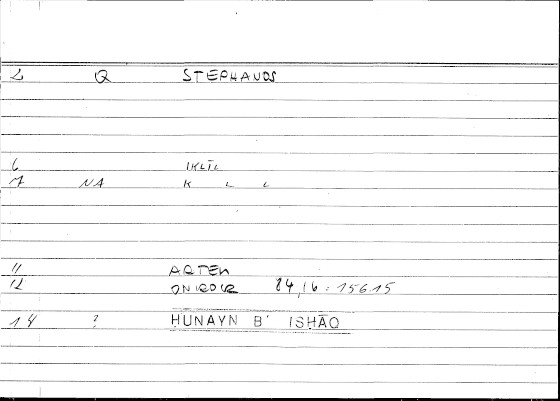 2 Q STEPHANOS
6 IKLĪL
7 NA K L L
11 ARTEM
12 ONIROCR 84,16 : 15615
14 ? ḤUNAYN B' ISḤĀQ